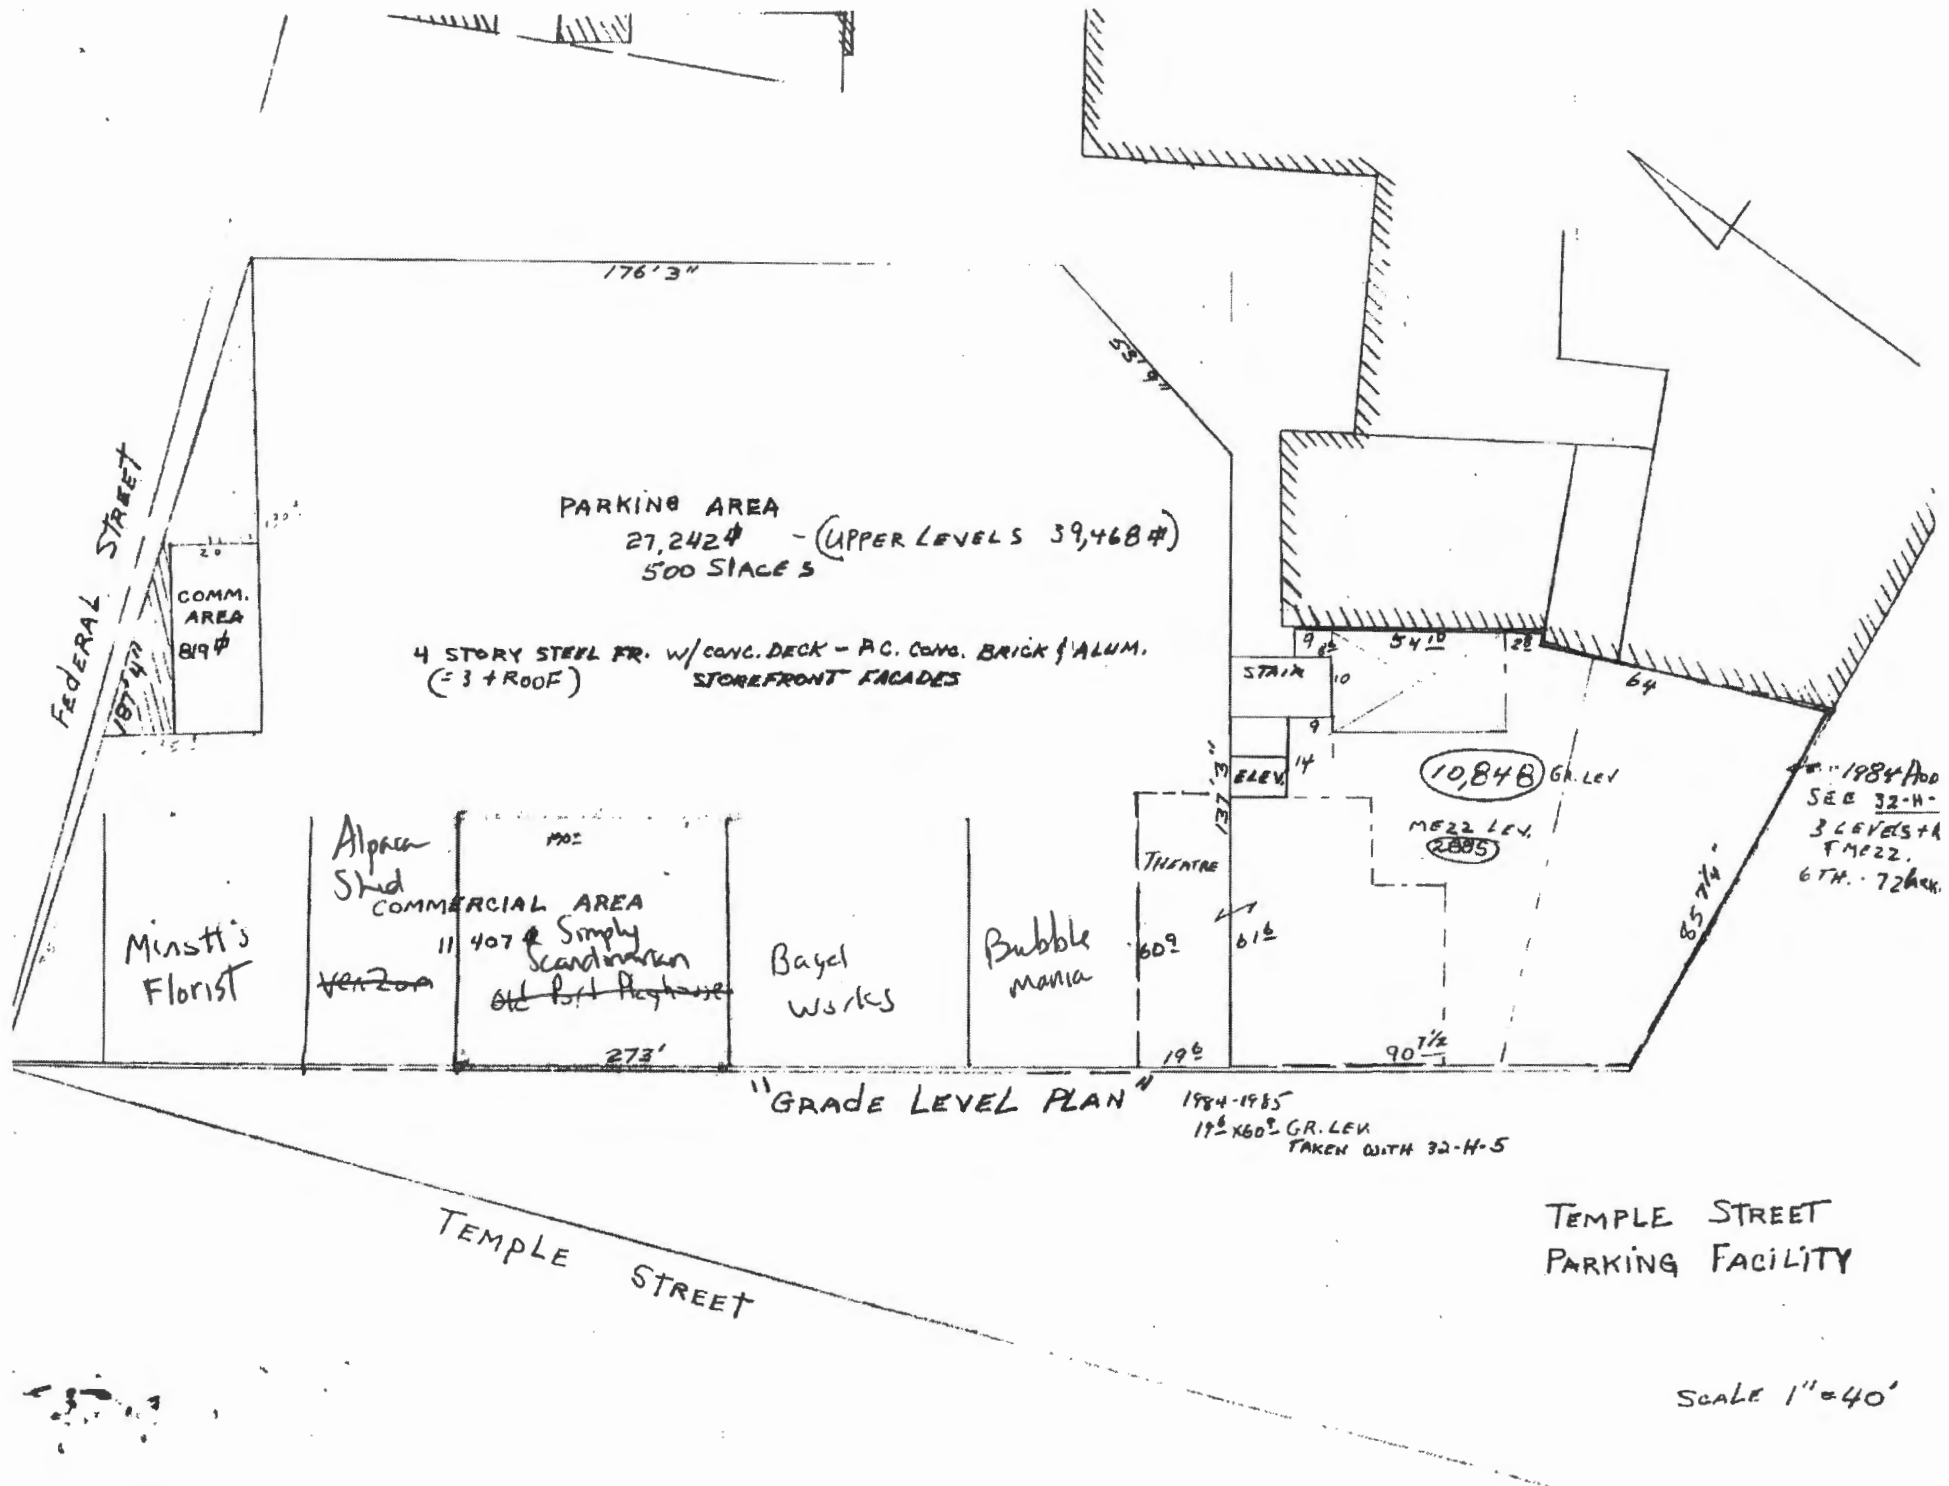 176'3"
53'9"
FEDERAL STREET
187'4"
20
COMM.
AREA
819⌗
PARKING AREA
27,242⌗ - (UPPER LEVELS 39,468⌗)
500 SPACES
4 STORY STEEL FR. W/ CONC. DECK - P.C. CONC. BRICK & ALUM.
(=3 + ROOF) STOREFRONT FACADES
9
54 10
64
STAIR
10
9
14
ELEV.
137'3"
10,848 GR. LEV
MEZZ LEV.
2885
1984 ADD
SEE 32-H-
3 LEVELS +
& MEZZ.
85 7 1/4"
THEATRE
60 9
61 6
19 6
90 7 1/2
Alpaca
Shed
COMMERCIAL AREA
11 407⌗
Simply
Scandinavian
Old Port Playhouse
Verizon
Minott's
Florist
Bagel
Works
Bubble
mania
273'
"GRADE LEVEL PLAN"
1984-1985
19 6 X 60 9 GR. LEV.
TAKEN WITH 32-H-5
TEMPLE STREET
TEMPLE STREET
PARKING FACILITY
SCALE 1"=40'